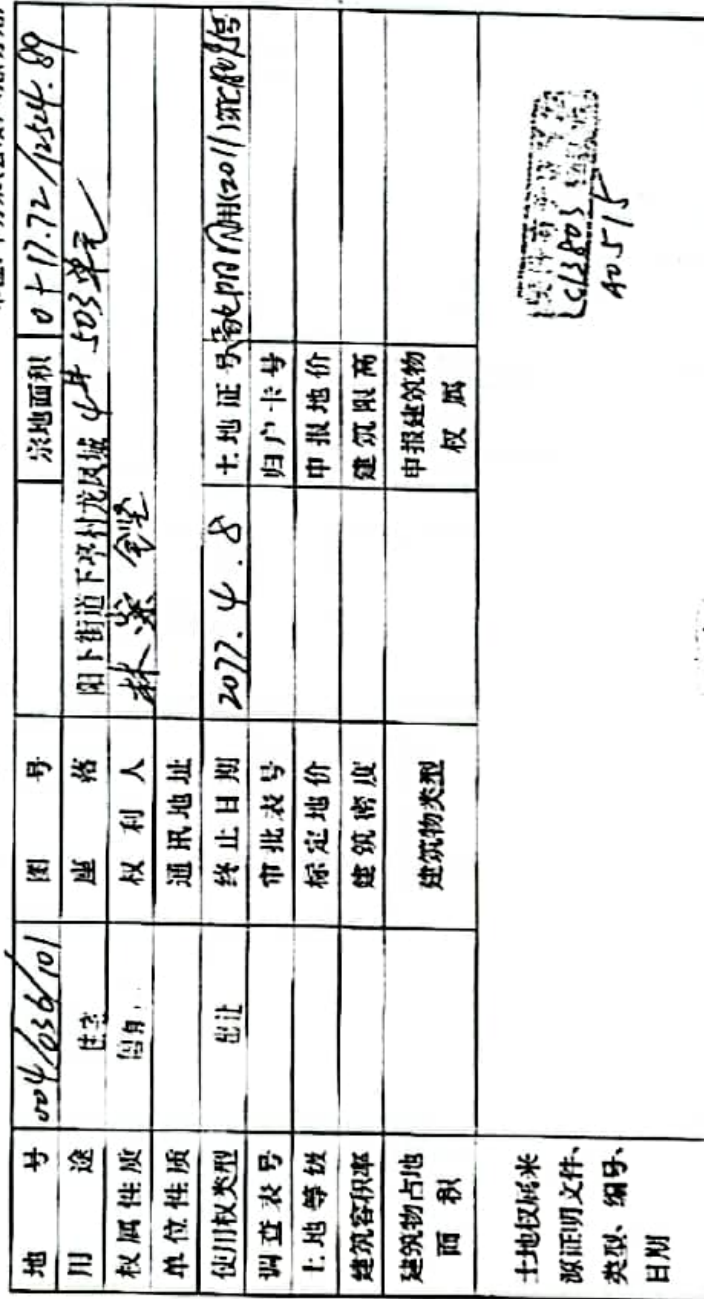 地号 004/036/101 图号 宗地面积 0+17.72/12524.89
用途 住宅 座落 阳下街道下亭村龙凤城4# 503单元
权属性质 国有 权利人 林
单位性质 通讯地址
使用权类型 出让 终止日期 2077.4.8 土地证号
调查表号 审批表号 归户卡号
土地等级 标定地价 申报地价
建筑容积率 建筑密度 建筑限高
建筑物占地面积 建筑物类型 申报建筑物权属
土地权属来
源证明文件、
类型、编号、
日期
C13803
A0515